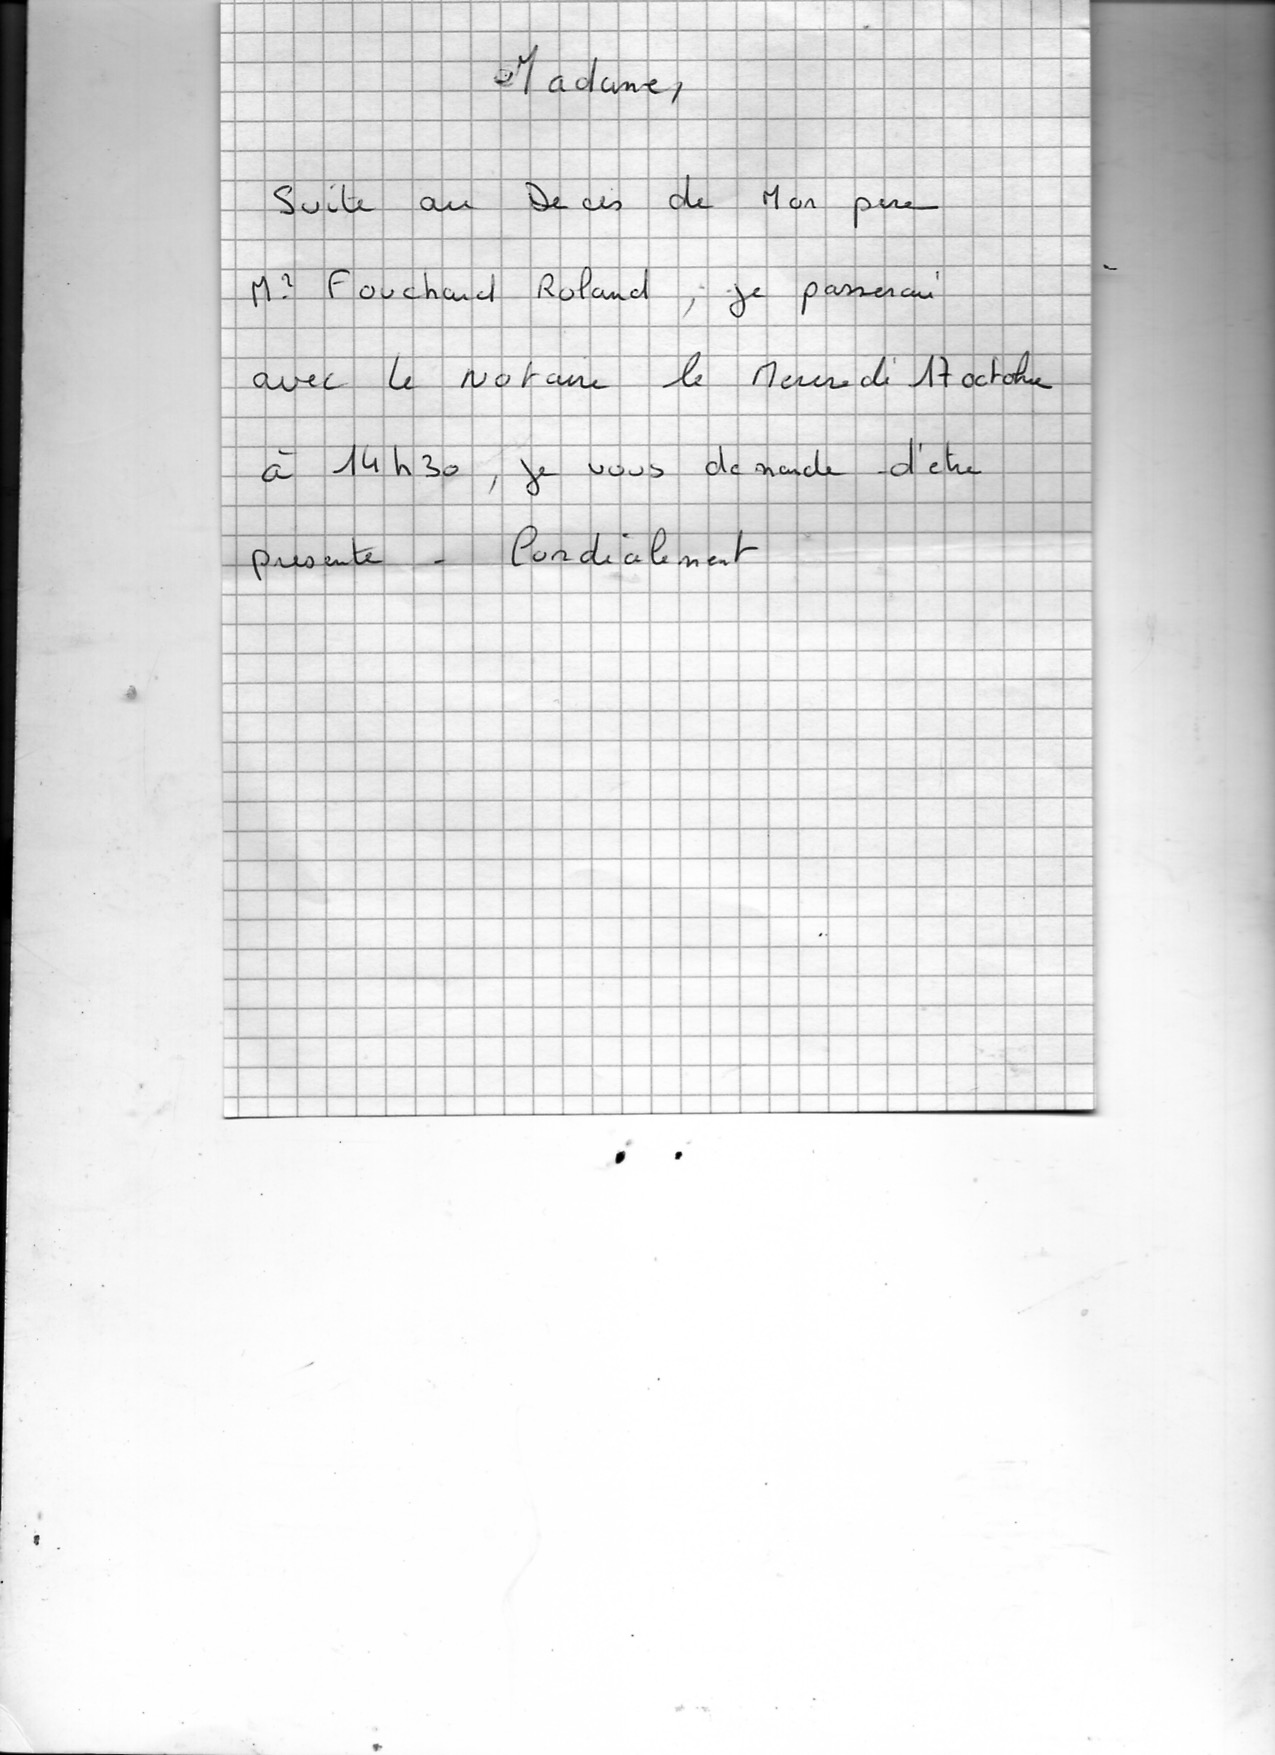 Madame,
Suite au Deces de Mon pere
Mr Fouchard Roland, je passerai
avec le Notaire le Mercredi 17 octobre
à 14h30, je vous demande d'etre
presente - Cordialement